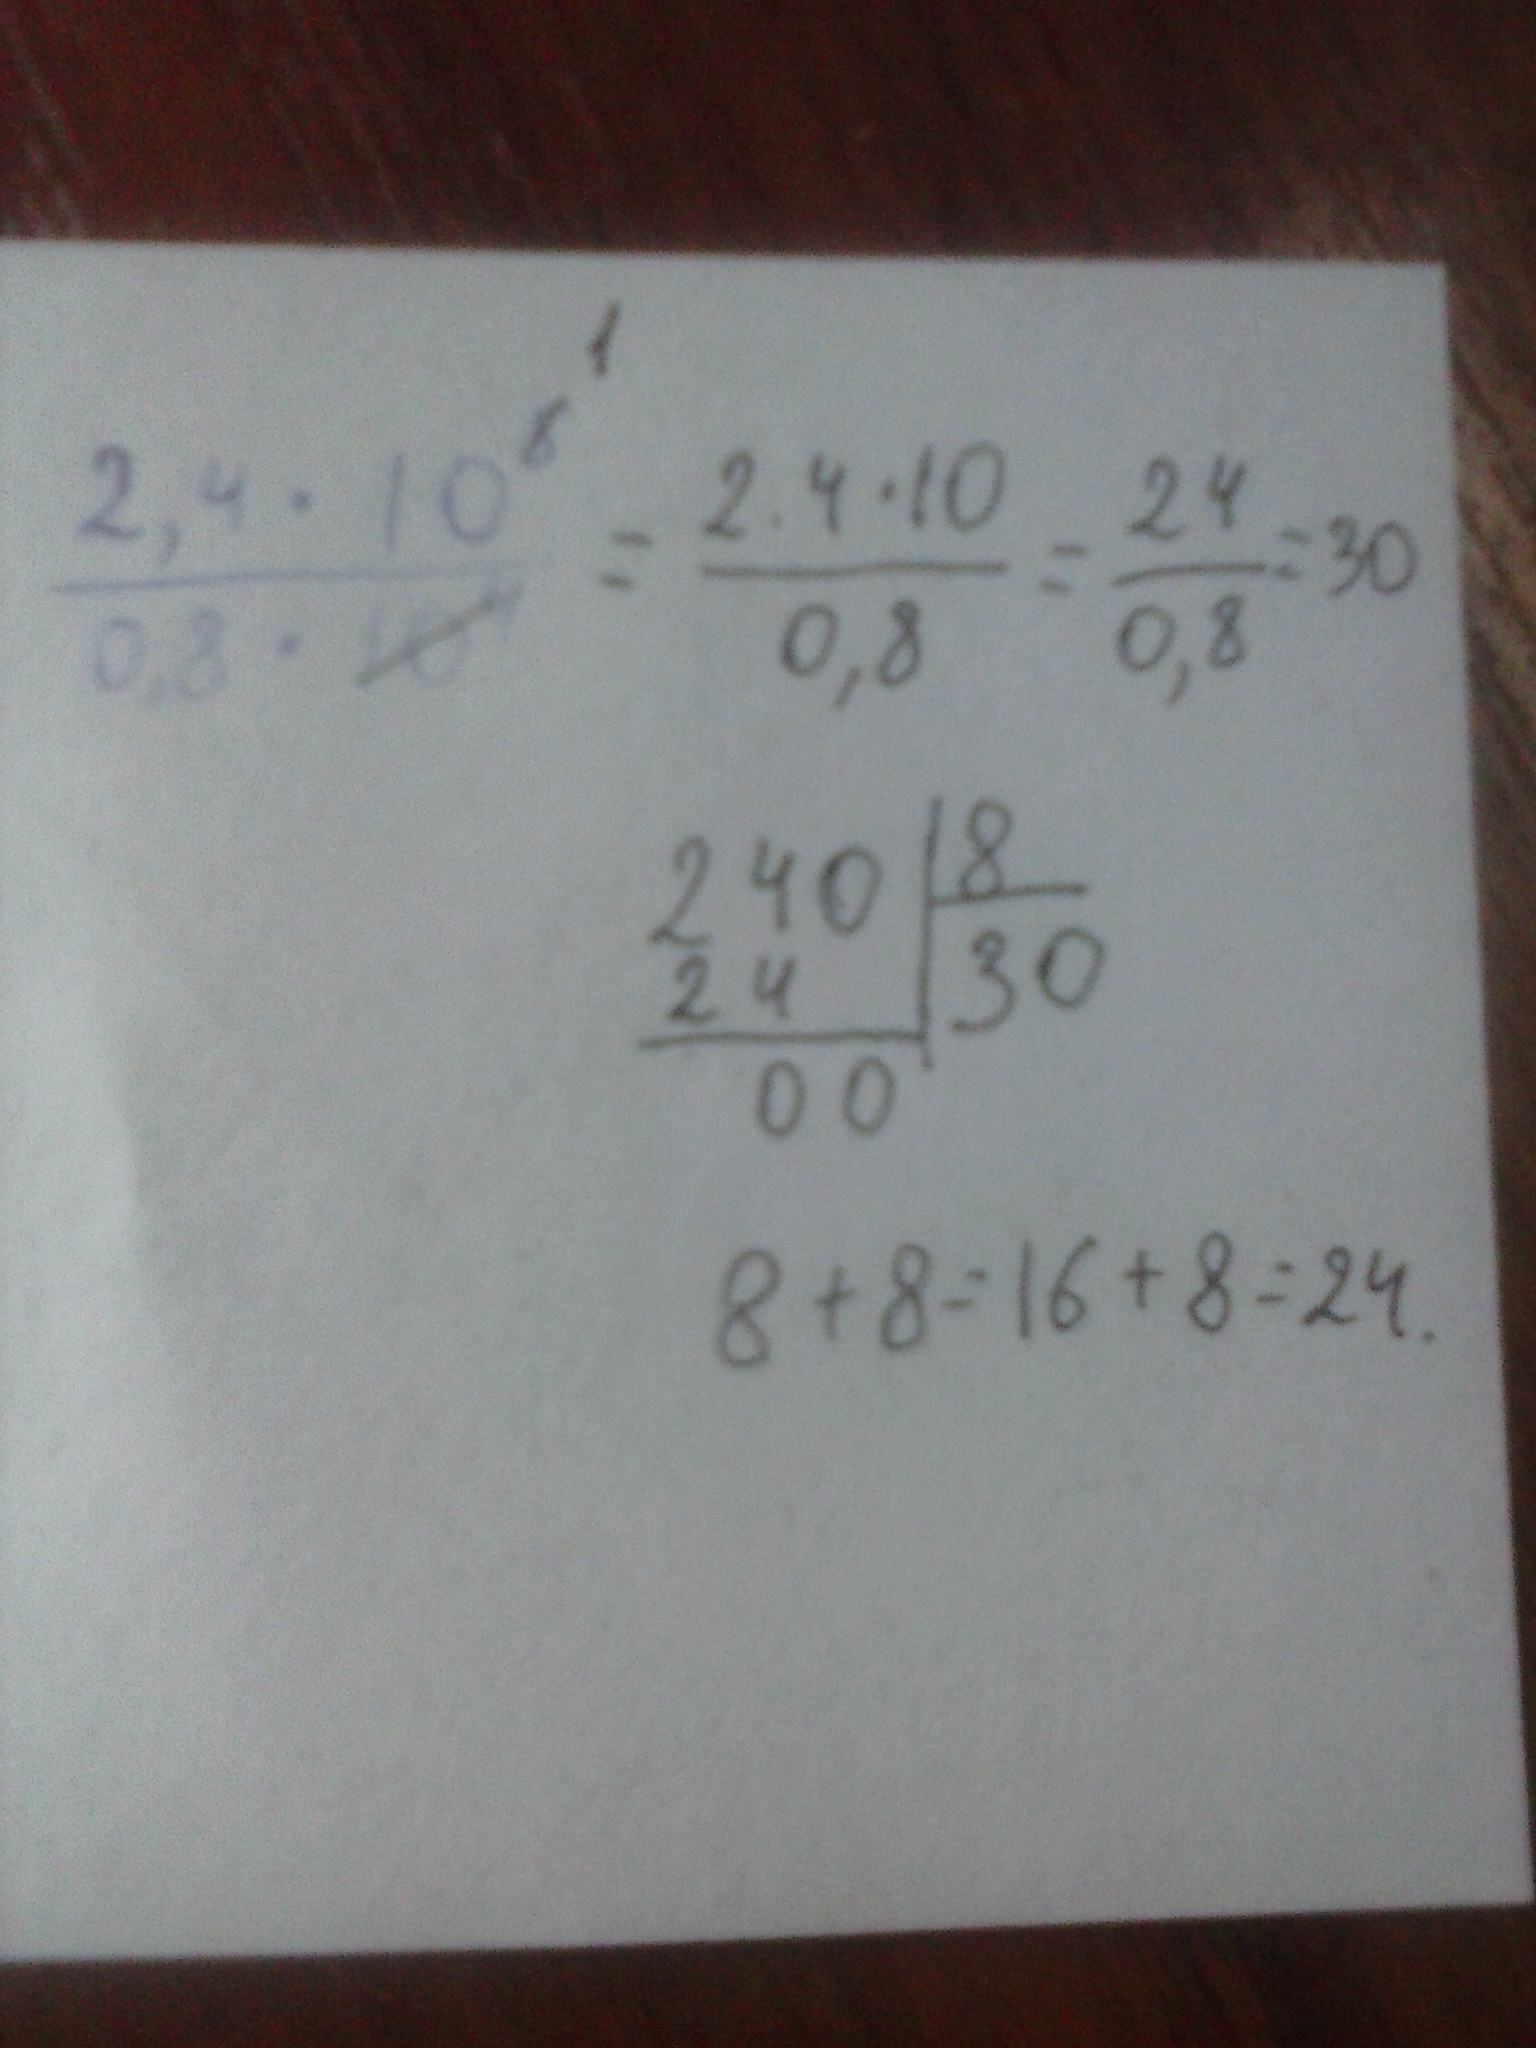 1
2,4 · 10⁸ / 0,8 · 10⁴ = 2.4·10 / 0,8 = 24 / 0,8 = 30
240 | 8
24 | 30
00
8+8=16+8=24.